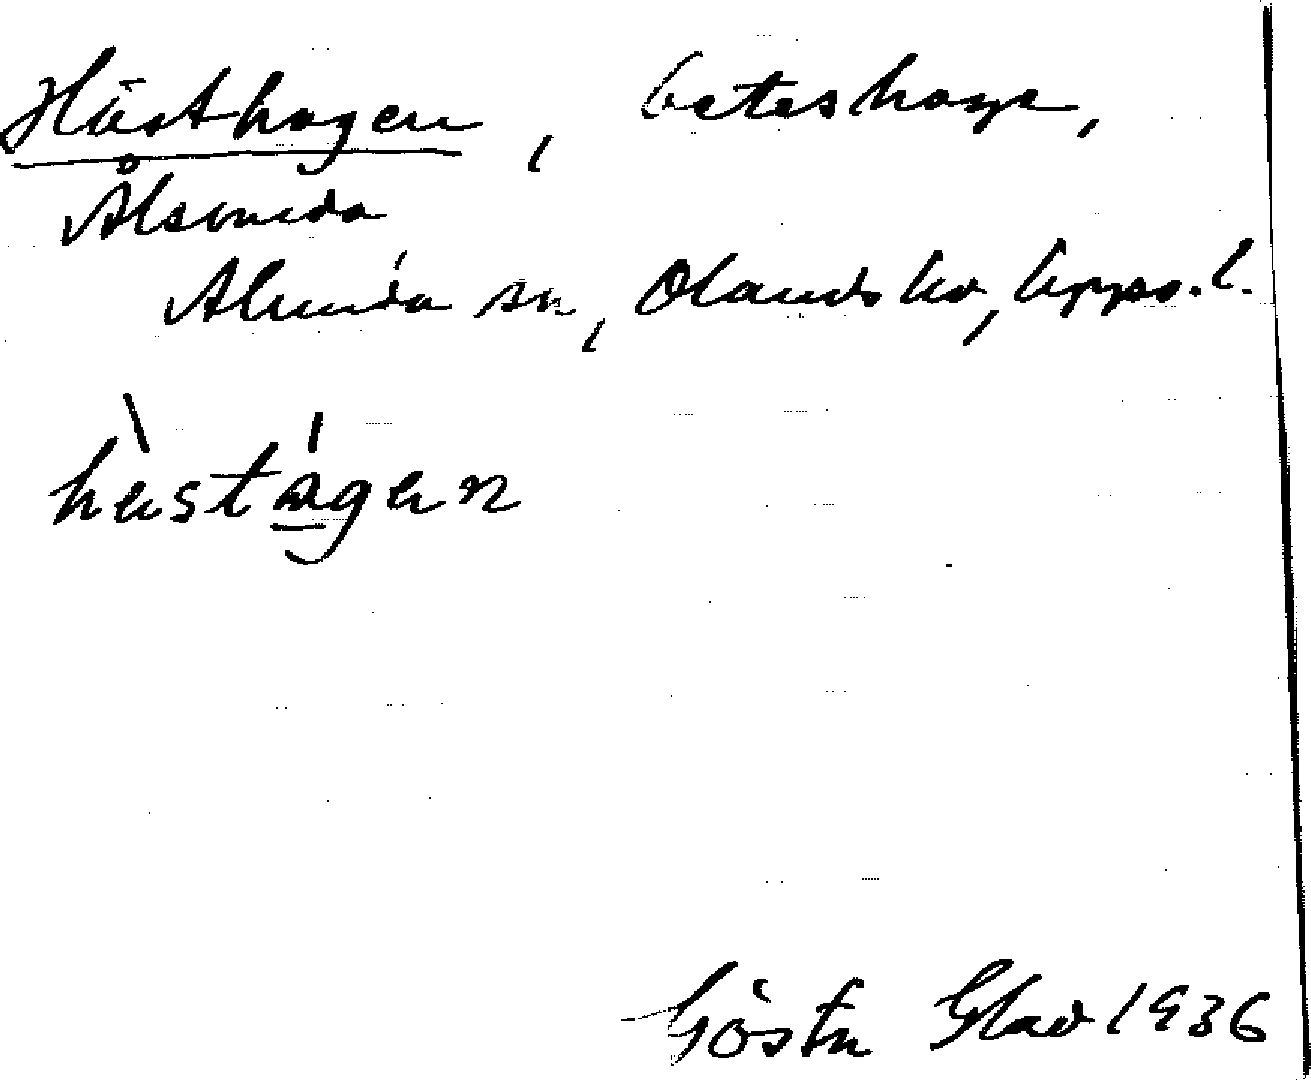 Hästhagen, beteshage,
Ålsunda
Alunda sn, Olands hd, Upps. l.
hästagen
Gösta Glad 1936